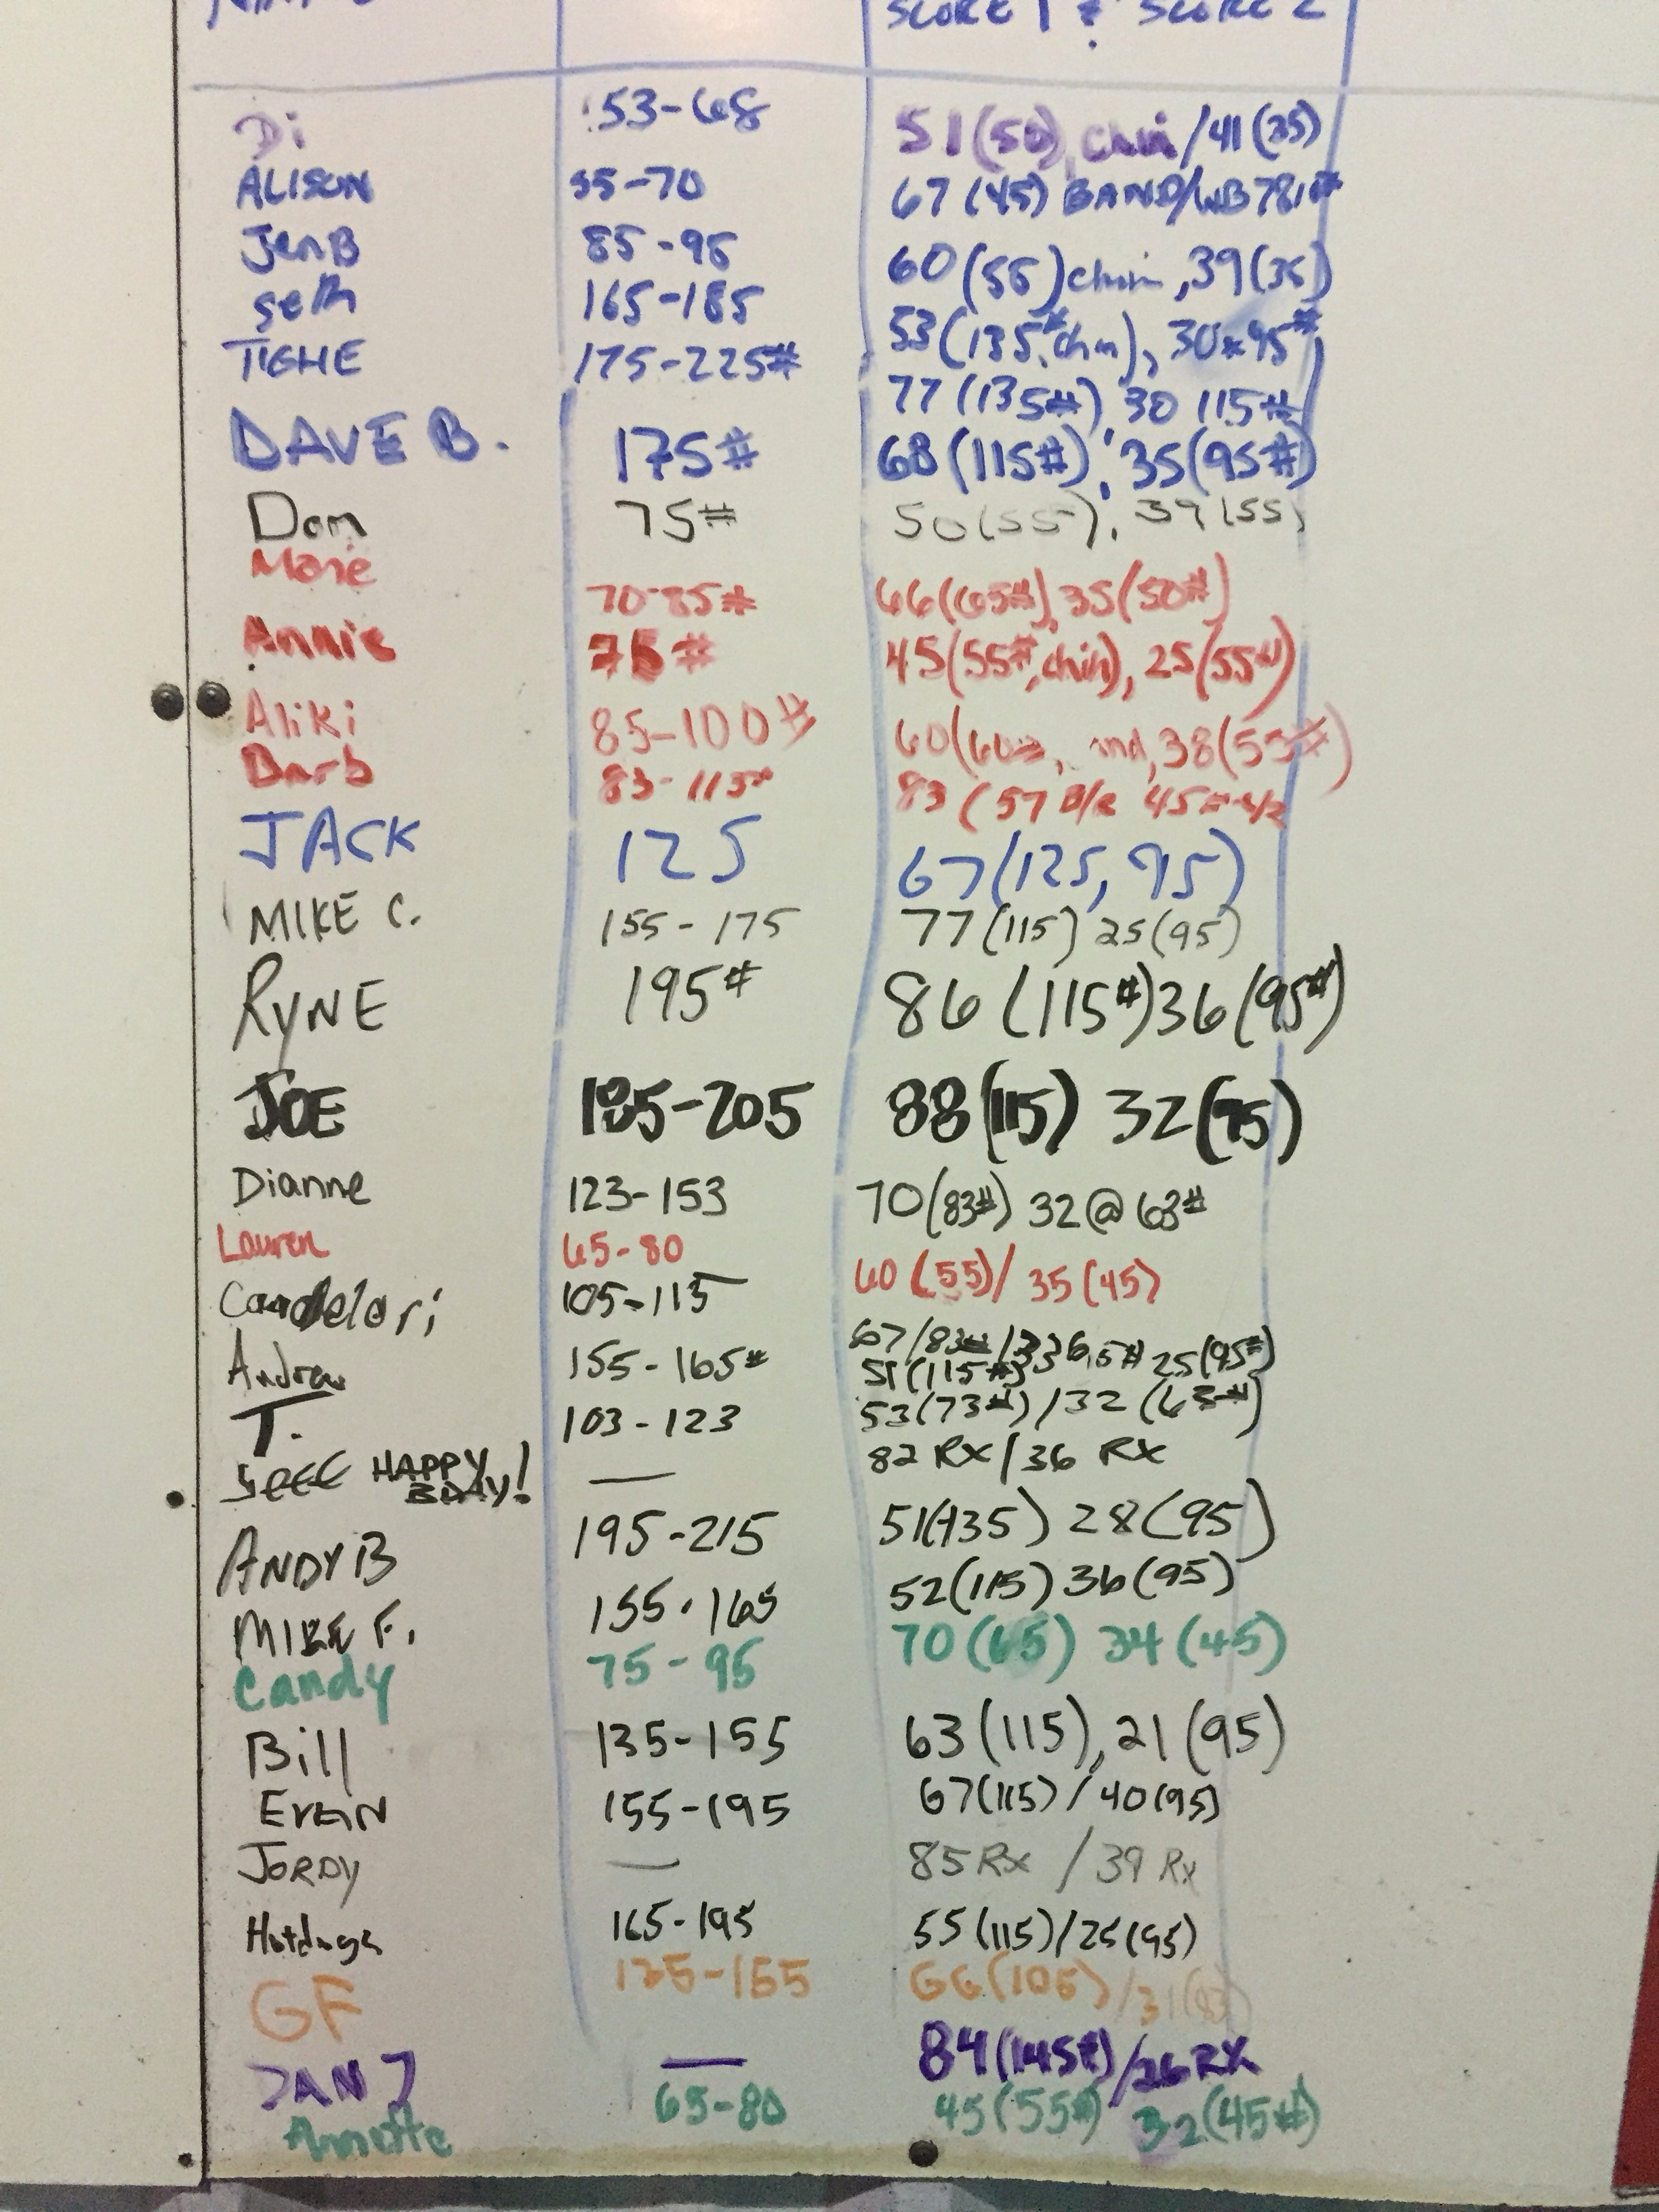 SCORE 1 & SCORE 2
Di 53-68 51(50) chin /41(35)
ALISON 55-70 67 (45) BAND/
JenB 85-95 60(55)chin, 39(35)
Seth 165-185 53(135#,chin), 30 95#
TIGHE 175-225# 77(135#), 30 115#
DAVE B. 175# 68(115#), 35(95#)
Dom 75# 50(55), 39(55)
70-85# 66(65#), 35(50#)
Annie 75# 45(55#,chin), 25(55#)
Aliki 85-100# 60(60#, 38(53#)
Barb 83-113# 83 (57 45#
JACK 125 67(125, 95)
MIKE C. 155-175 77(115) 25(95)
RYNE 195# 86(115#)36(95#)
JOE 185-205 88(115) 32(95)
Dianne 123-153 70(83#) 32@63#
Lauren 65-80 60(55)/ 35(45)
Candelori 105-115 67/83#/
Andrew 155-165# 51(115#) 25(95#)
T. 103-123 53(73#)/32(63#)
HAPPY BDAY! — 82 RX/36 RX
ANDY B 195-215 51(135) 28(95)
MIKE F. 155-165 52(115) 36(95)
Candy 75-95 70(65) 34(45)
Bill 135-155 63(115), 21(95)
EVAN 155-195 67(115)/40(95)
JORDY — 85 RX / 39 RX
Hotdogs 165-195 55(115)/25(95)
GF 135-155 66(105)/31(83)
DAN J — 84(145#)/26 RX
Annette 65-80 45(55#) 32(45#)